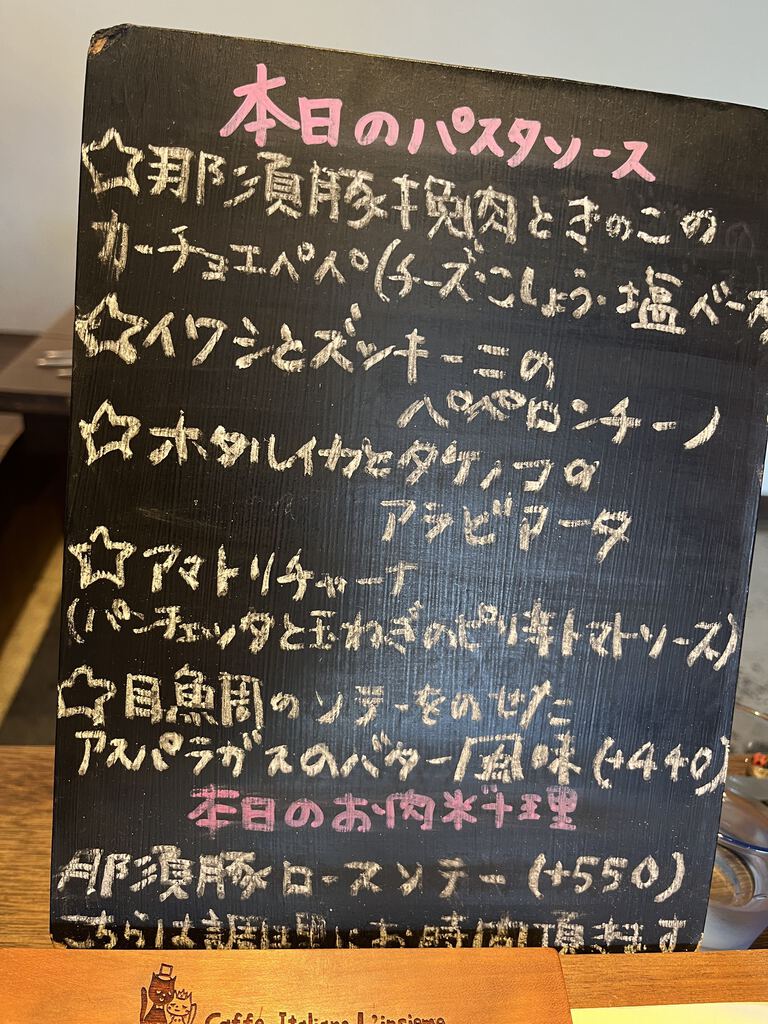 本日のパスタソース
☆那須豚挽肉ときのこの
カーチョエペペ(チーズ・こしょう・塩ベース
☆イワシとズッキーニの
ペペロンチーノ
☆ホタルイカとタケノコの
アラビアータ
☆アマトリチャーナ
(パンチェッタと玉ねぎのピリ辛トマトソース)
☆目鯛のソテーをのせた
アスパラガスのバター風味(+440)
本日のお肉料理
那須豚ロースソテー(+550)
こちらは調理にお時間頂きます
Caffe Italiano L'insieme